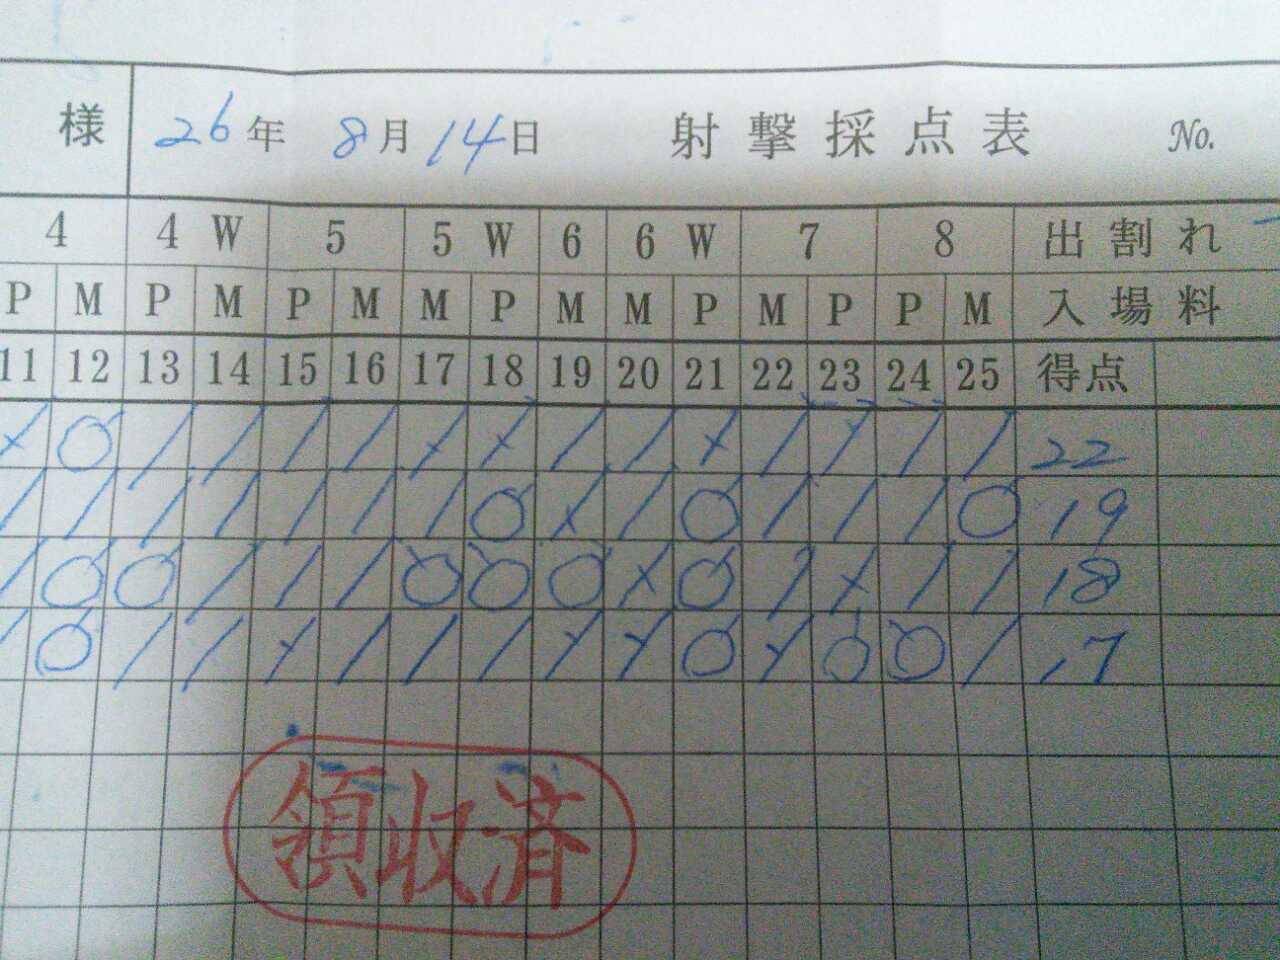 様 26年 8月 14日 射撃採点表 No.
4 4 W 5 5 W 6 6 W 7 8 出割れ
P M P M P M M P M M P M P P M 入場料
11 12 13 14 15 16 17 18 19 20 21 22 23 24 25 得点
22
19
18
17
領収済